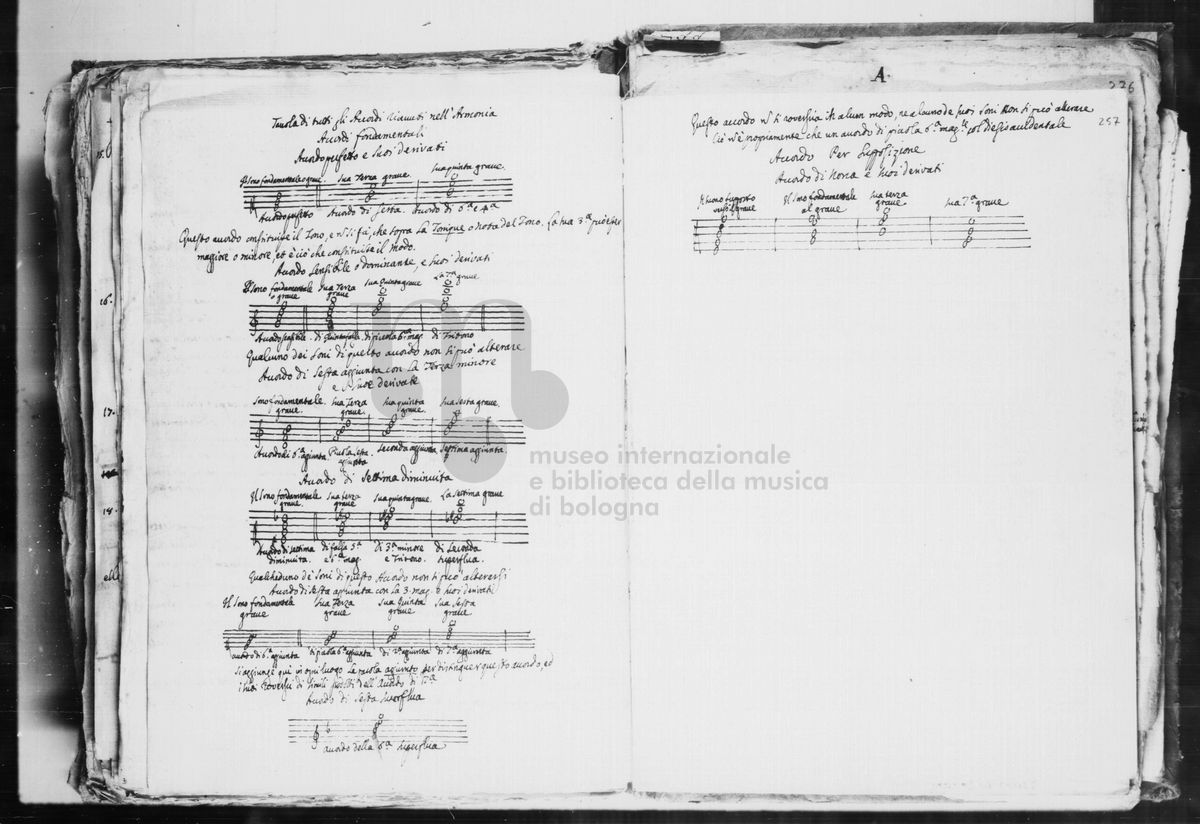 Tavola di tutti gli Accordi ricevuti nell'Armonia
Accordi fondamentali
Accordo perfetto e suoi derivati
Il sono fondamentale o grave. Sua Terza grave. Sua quinta grave.
Accordo perfetto Accordo di sesta. Accordo di 6ª e 4ª
Questo accordo constituisce il Tono, e non si fà, che sopra La Tonique o nota del Tono. La sua 3ª può esser
maggiore o minore, ed è ciò che constituisce il Modo.
Accordo sensibile o dominante, e suoi derivati
Il sono fondamentale o grave Sua Terza grave Sua Quinta grave La 7ª grave
Accordo sensibile. di quinta falsa. di picciola 6ta mag. di Tritono
Qualcuno dei soni di questo accordo non si può alterare
Accordo di sesta aggiunta con La Terza minore
e Suoi derivati
Sono fondamentale. grave. Sua Terza grave. Sua quinta grave. Sua sesta grave.
Accordo di 6ª aggiunta Picciola sesta aggiunta Seconda aggiunta Settima aggiunta.
Accordo di Settima diminuita
Il Sono fondamentale grave. Sua terza grave. Sua quinta grave. La settima grave
Accordo di settima diminuita. di falsa 5ª e 6ª mag. di 3ª minore e Tritono. di Seconda superflua.
Qualcheduno de' soni di questo Accordo non si può alterarsi
Accordo di Sesta aggiunta con La 3. mag. e suoi derivati
Il Sono fondamentale grave Sua Terza grave Sua Quinta grave Sua Sesta grave
accordo di 6ª aggiunta di picciola 6ª aggiunta di 2ª aggiunta di 7ª aggiunta
Si aggiunge quì in ogni luogo La parola aggiunto per distinguer questo accordo, ed
i suoi roversci di simili prodotti dell'Accordo di 7ª
Accordo di Sesta superflua
accordo della 6ª superflua
15.
16.
17.
18.
A.
226
257
Questo accordo non si roverscia in alcun modo, ne alcuno de suoi soni non si può alterare
Ciò non è propriamente che un accordo di picciola 6ª mag. col diesis accidentale
Accordo Per Supposizione
Accordo di Nona e suoi derivati
Il sono supposto Il sono fondamentale al grave Sua terza grave Sua 7ª grave
museo internazionale
e biblioteca della musica
di bologna